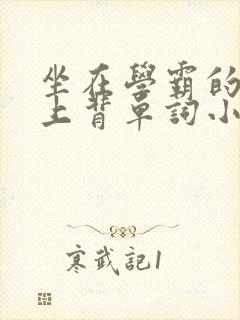 坐在學霸的
上背單詞小
寒武記1